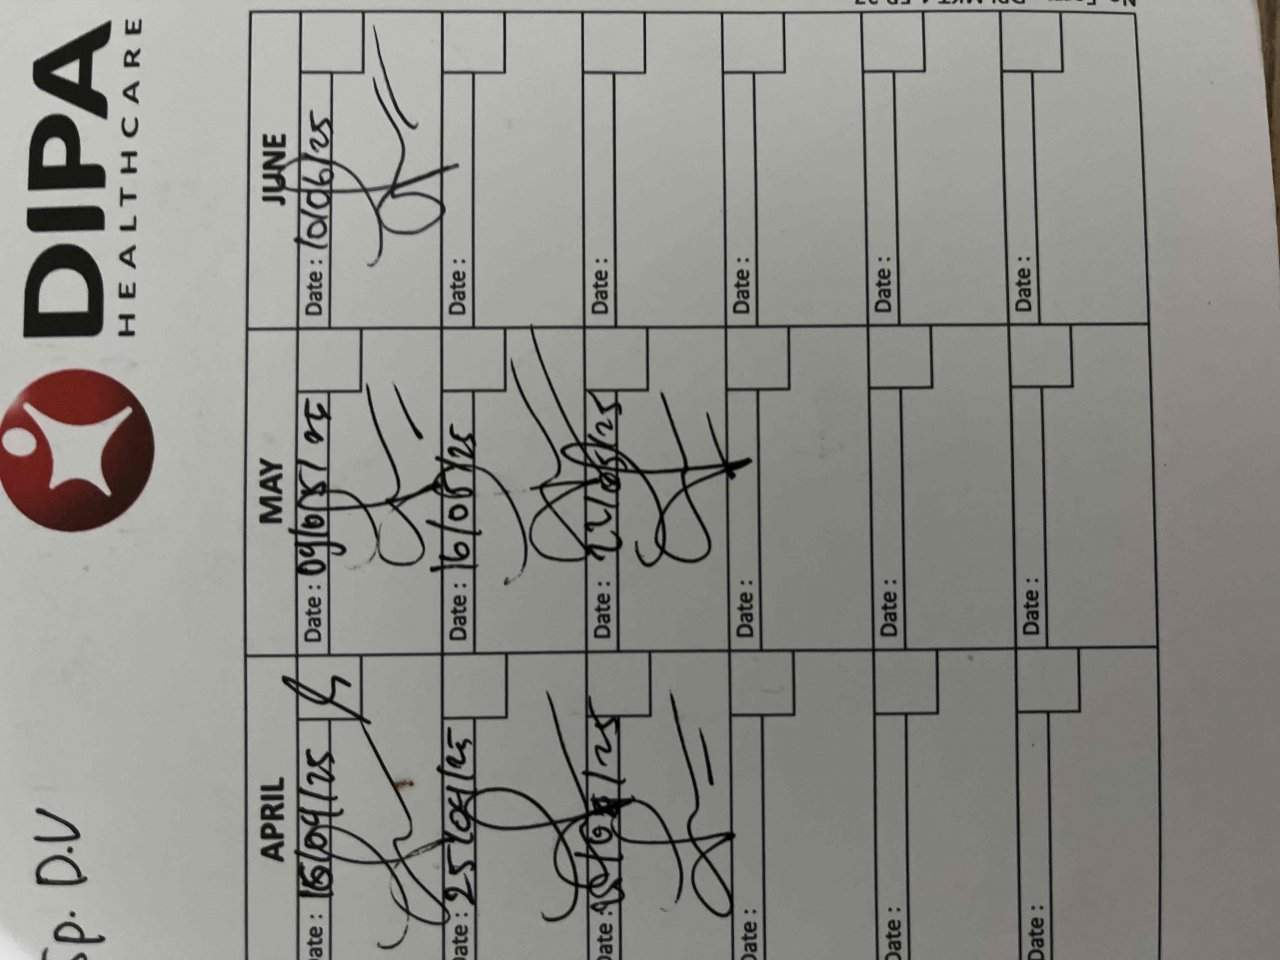 Sp. D.V
DIPA
HEALTHCARE
APRIL MAY JUNE
Date : 15/04/25 Date : 09/05/25 Date : 10/06/25
Date : 25/04/25 Date : 16/05/25 Date :
Date : Date : 22/05/25 Date :
Date : Date : Date :
Date : Date : Date :
Date : Date : Date :